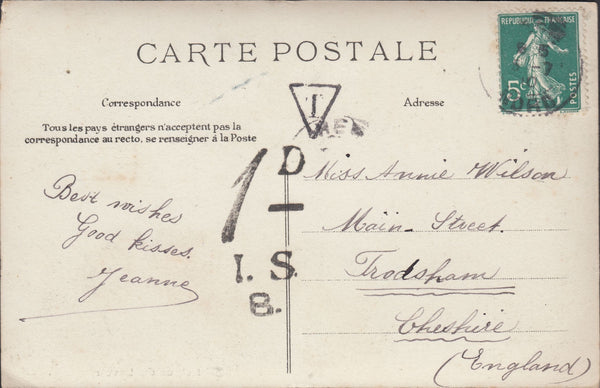 CARTE POSTALE
RÉPUBLIQUE FRANÇAISE
5c
POSTES
T
Correspondance
Adresse
Tous les pays étrangers n'acceptent pas la
correspondance au recto, se renseigner à la Poste
1D
I. S.
8.
Best wishes
Good kisses.
Jeanne
Miss Annie Wilson
Main Street.
Frodsham
Cheshire
(England)